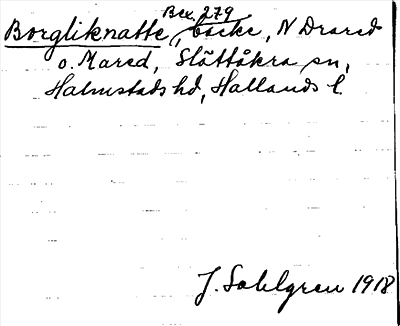 Bex. 279
Borgliknatte, backe, N Drared
o. Mared, Slättåkra sn,
Halmstads hd, Hallands l.
J. Sahlgren 1918